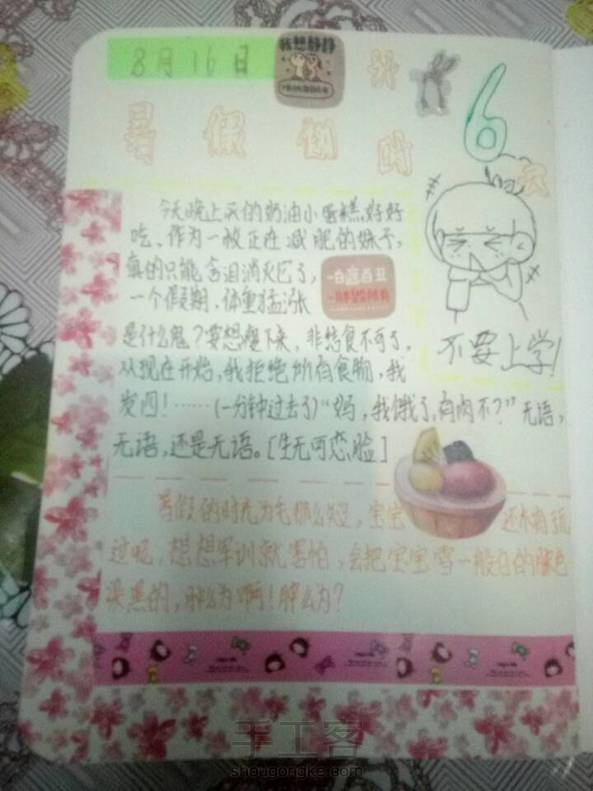 8月16日
我想静静
6
天
暑假倒时
今天晚上买的奶油小蛋糕好好
吃、作为一枚正在减肥的妹子,
真的只能含泪消灭它了,
一个假期,体重猛涨
一白遮百丑
是什么鬼?要想瘦下来,非绝食不可了,
从现在开始,我拒绝所有食物,我
发四!……(一分钟过去了)“妈,我饿了,有肉不?”无语,
无语,还是无语。[生无可恋脸]
不要上学!
暑假的时光为毛那么短,宝宝还木有玩
过呢,想想军训就害怕,会把宝宝雪一般白的肤色
染黑的,肿么办啊!肿么办?
手工客
shougongke.com